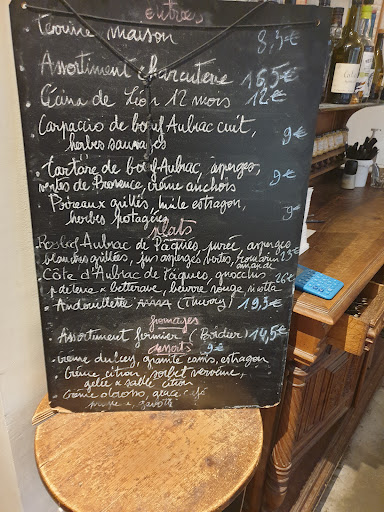 entrées
Terrine maison 8,5€
Assortiment charcuterie 16,5€
Cecina de León 12 mois 12€
Carpaccio de bœuf Aubrac cuit,
herbes sauvages 9€
Tartare de bœuf Aubrac, asperges
vertes de Provence, crème anchois 9€
Poireaux grillés, huile estragon,
herbes potagères 9€
plats
Rosbeef Aubrac de Pâques, purée, asperges
blanches grillées, jus asperges vertes, romarin 25€
amande
Côte d'Aubrac de Pâques, gnocchis 26€
p. de terre & betterave, beurre rouge, ricotta
Andouillette AAAAA (Thierry) 19,5€
fromages
Assortiment fermier (Bordier) 14,5€
desserts 9€
crème dulcey, granité, estragon
Crème citron, sorbet verveine,
gelée & sablé citron
Crème oloroso, glace café